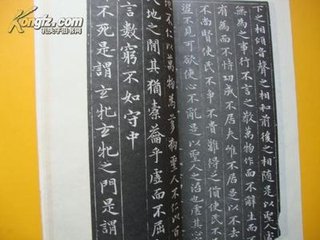 下之相頃音聲之相和前後之相隨是以聖人處
無為之事行不言之教萬物作而不辭生而
為而不恃功成不居夫唯不居是以不去
不尚賢使民不爭不貴難得之貨使民不
盜不見可欲使心不亂是以聖人之治也虛其心
不仁以萬物為芻狗聖人不仁以百
地之間其猶橐籥乎虛而不屈
言數窮不如守中
不死是謂玄牝玄牝之門是謂